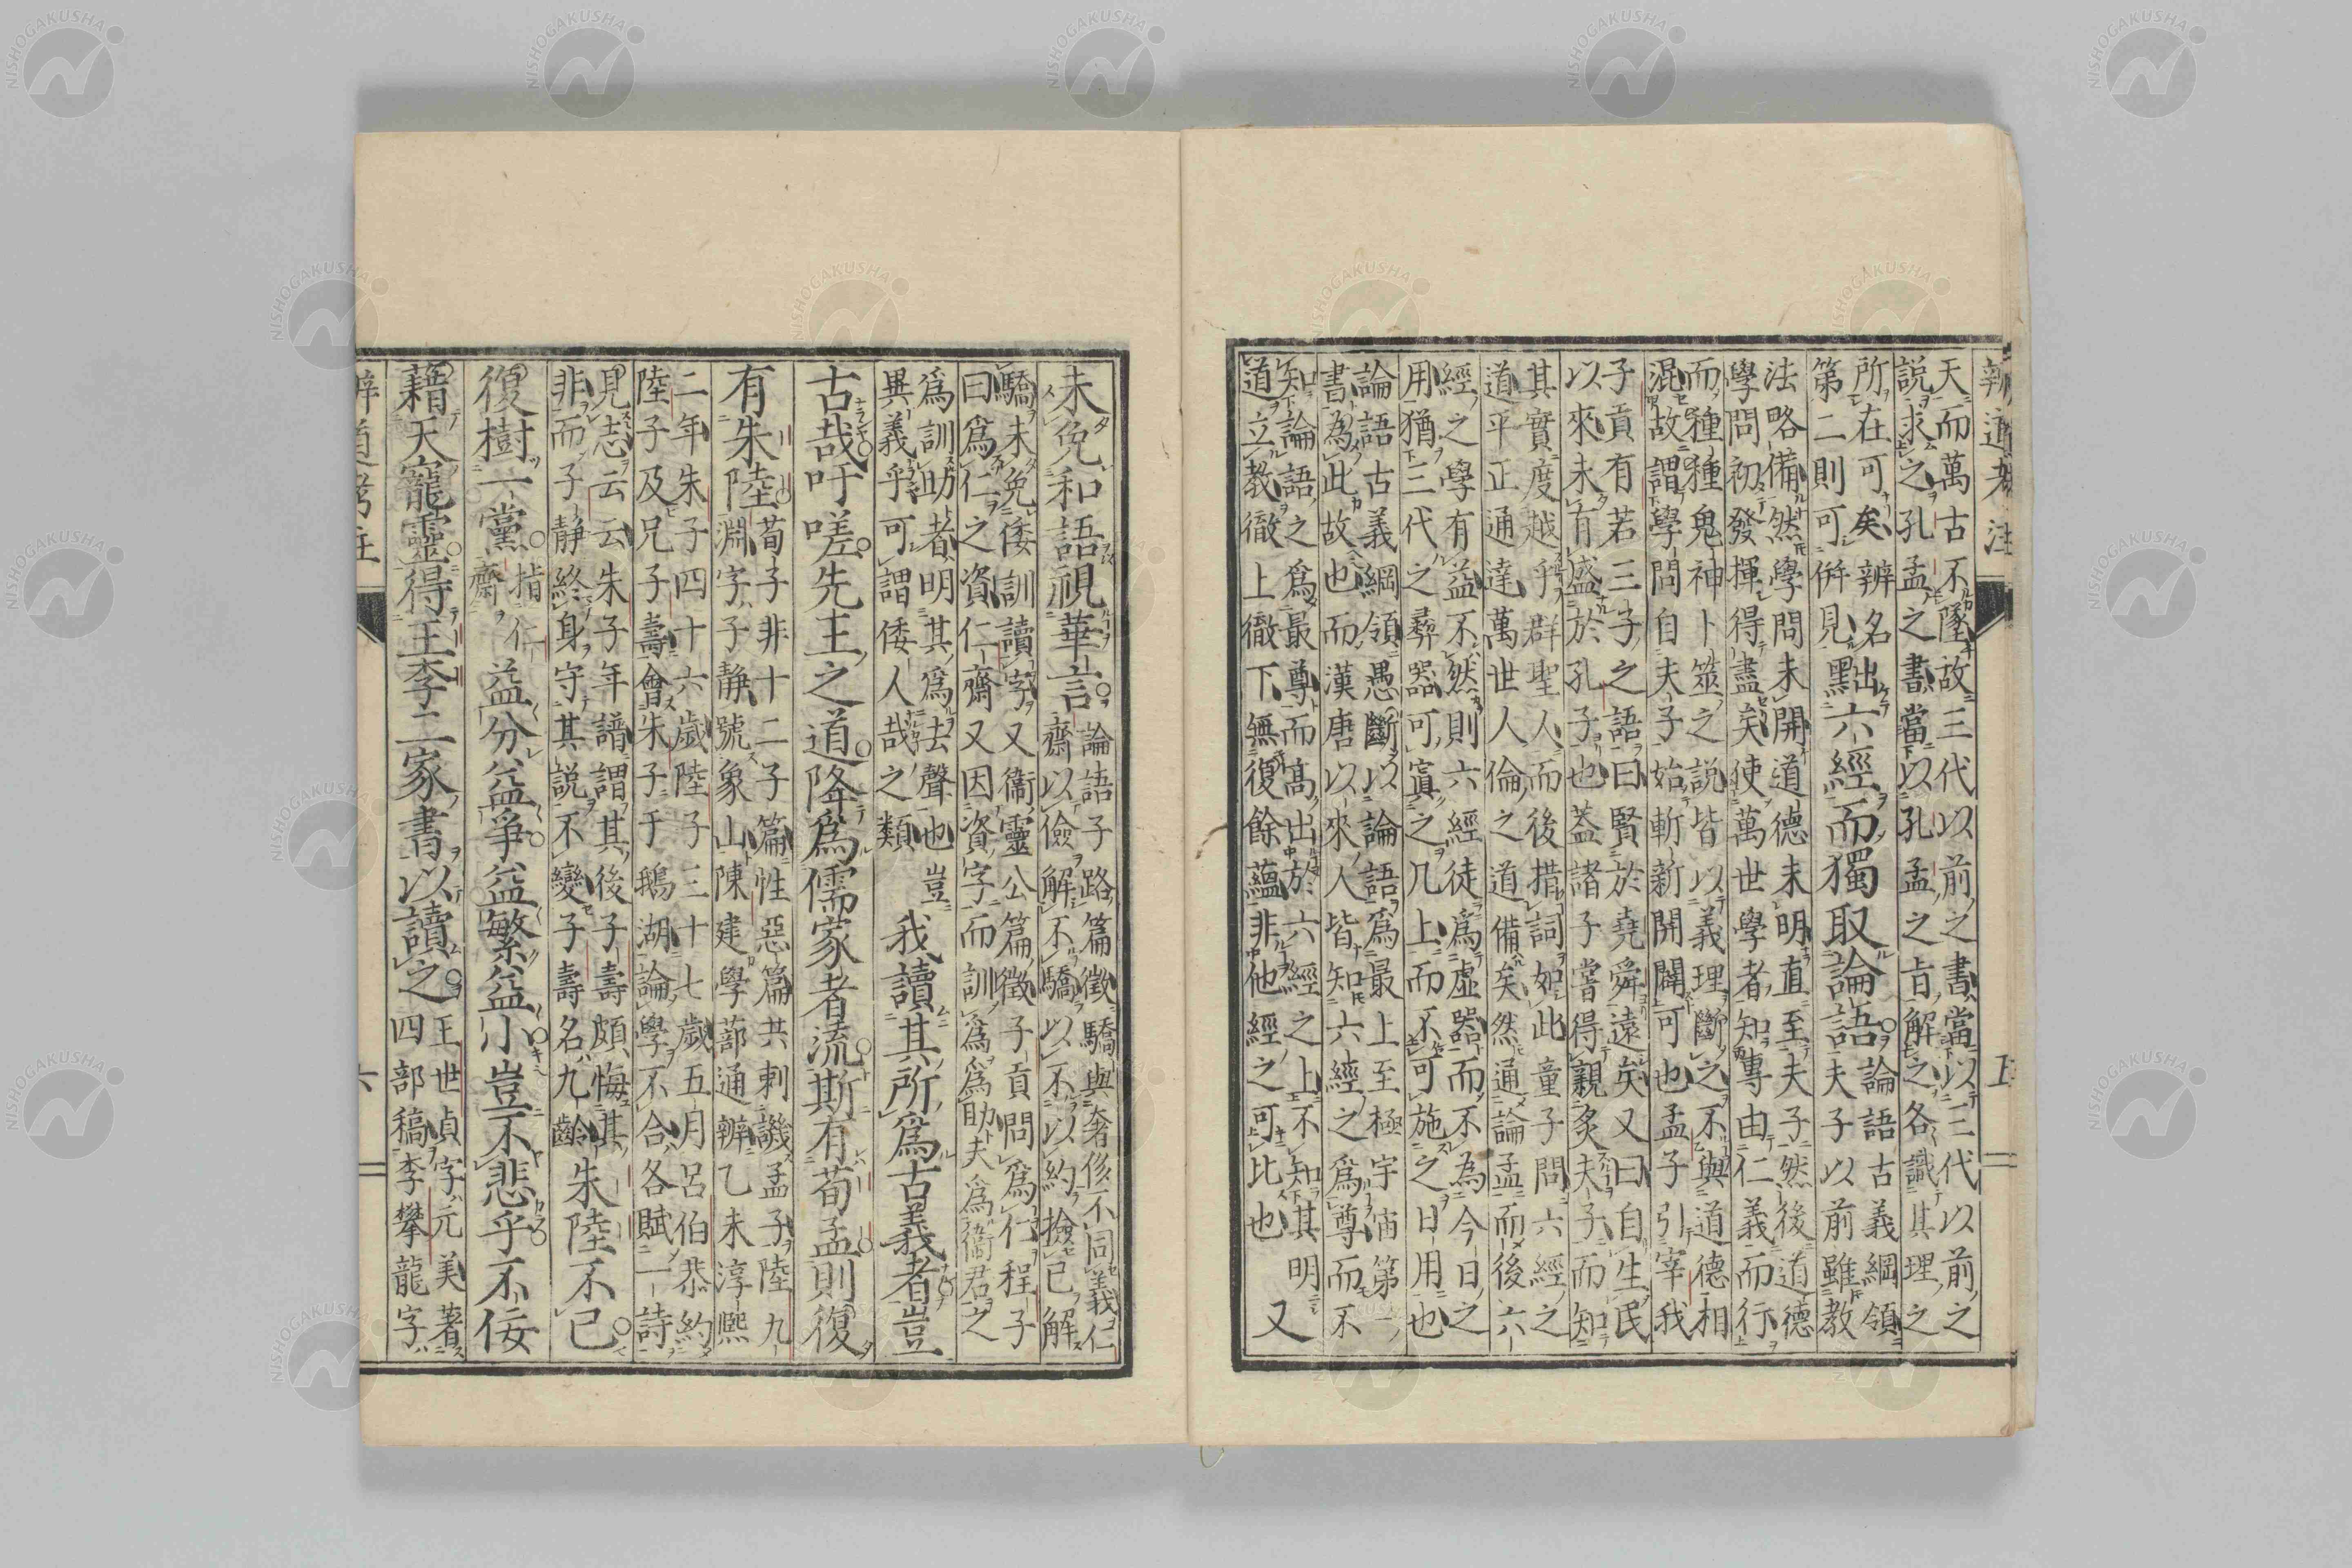 辨道考注
五
天而萬古不墜故三代以前之書當以三代以前之
說求之孔孟之書當以孔孟之旨解之各識其理之
所在可矣辨名出
第二則可併見
黜六經而獨取論語
論語古義綱領
夫子以前雖教
法略備然學問未開道德未明直至夫子然後道德
學問初發揮得盡矣使萬世學者知專由仁義而行
而種種鬼神卜筮之說皆以義理斷之不與道德相
混故謂學問自夫子始斬新開闢可也孟子引宰我
子貢有若三子之語曰賢於堯舜遠矣又曰自生民
以來未有盛於孔子也蓋諸子嘗得親炙夫子而知
其實度越乎群聖人而後措詞如此童子問六經之
道平正通達萬世人倫之道備矣然通論孟而後六
經之學有益不然則六經徒爲虛器而不為今日之
用猶三代之彝器可寘之几上而不可施之日用也
論語古義綱領愚斷以論語爲最上至極宇宙第一
書為此故也而漢唐以來人皆知六經之爲尊而不
知論語之爲最尊而高出於六經之上不知其明
道立教徹上徹下無復餘蘊非他經之可比也
又
未免和語視華言
論語子路篇徵驕與奢侈不同義仁
齋以儉解不驕以不以約撿已解
驕未免倭訓讀字又衞靈公篇徵子貢問爲仁程子
曰爲仁之資仁齋又因資字而訓爲爲助夫爲衞君之
爲訓助者明其爲去聲也
異義乎可謂倭人哉之類
豈我讀其所爲古義者豈
古哉吁嗟先王之道降爲儒家者流斯有荀孟則復
有朱陸
荀子非十二子篇性惡篇共刺譏孟子陸九
淵字子靜號象山陳建學蔀通辨乙未淳熙
二年朱子四十六歲陸子三十七歲五月呂伯恭約
陸子及兄子壽會朱子于鵝湖論學不合各賦一詩
見志云云朱子年譜謂其後子壽頗悔其
非而子靜終身守其說不變子壽名九齡
朱陸不已
復樹一黨
指仁
齋
益分益爭益繁益小豈不悲乎不佞
藉天寵靈得王李二家書以讀之
王世貞字元美著
四部稿李攀龍字